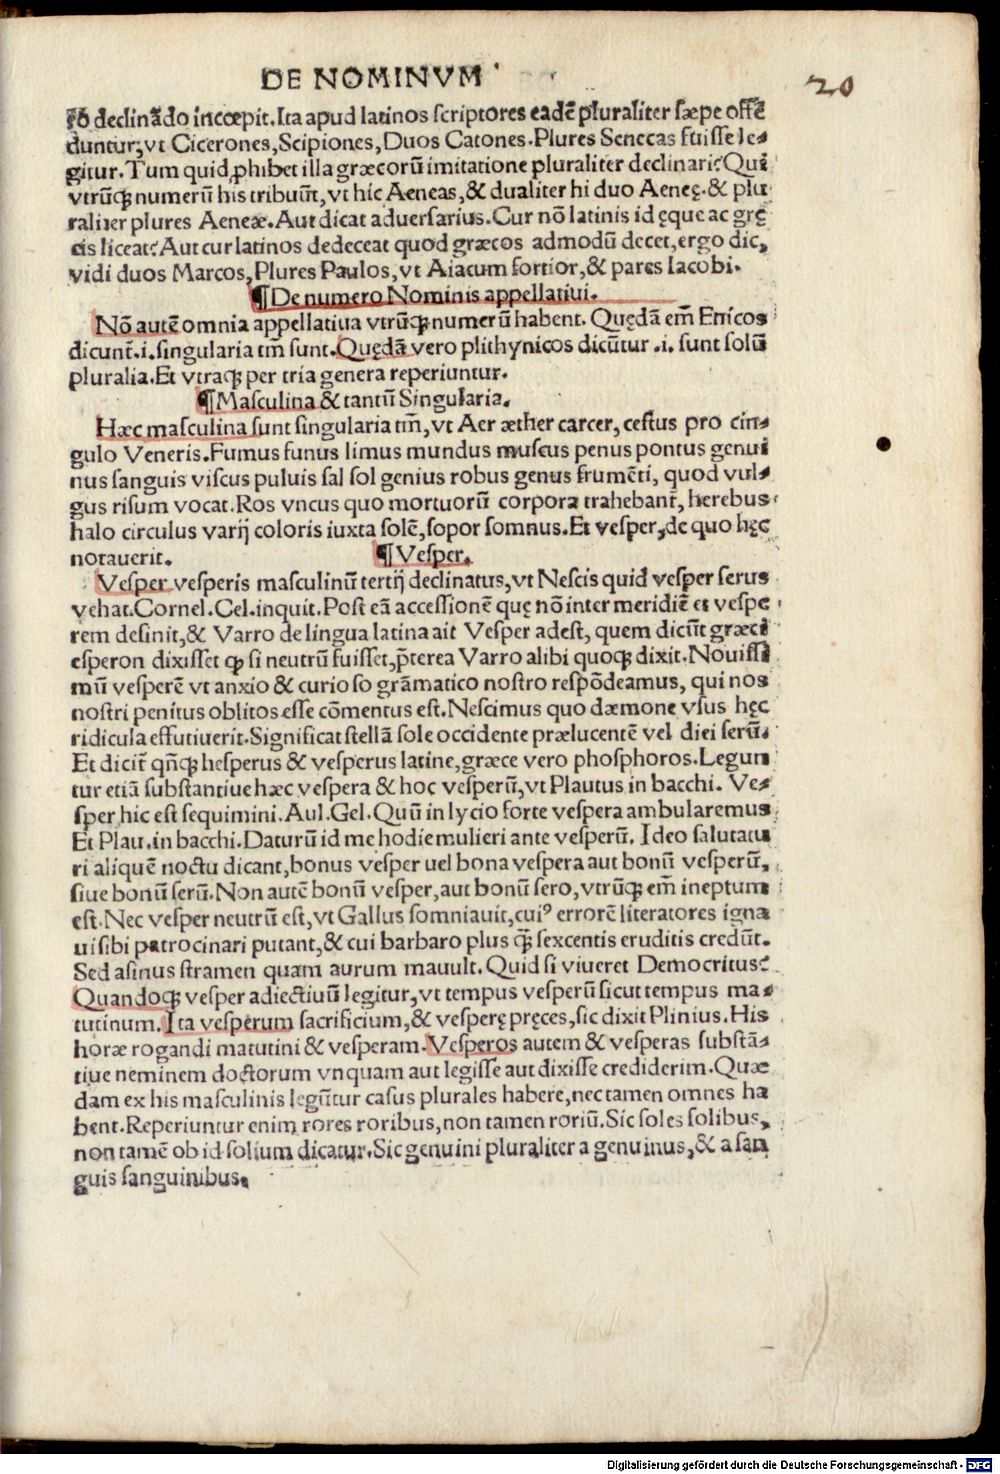 DE NOMINVM
20
rõ declinãdo incœpit. Ita apud latinos scriptores eadẽ pluraliter sæpe offẽ
duntur, vt Cicerones, Scipiones, Duos Catones. Plures Senecas fuisse le⸗
gitur. Tum quid ꝓhibet illa græcorũ imitatione pluraliter declinari? Qui
vtrũqꝫ numerũ his tribuũt, vt hic Aeneas, & dualiter hi duo Aeneę. & plu
raliter plures Aeneæ. Aut dicat adversarius. Cur nõ latinis id ęque ac grę
cis liceat? Aut cur latinos dedeceat quod græcos admodũ decet, ergo dic,
vidi duos Marcos, Plures Paulos, vt Aiacum fortior, & pares Iacobi.
¶ De numero Nominis appellatiui.
Nõ autẽ omnia appellatiua vtrũqꝫ numerũ habent. Quędã em̃ Enicos
dicunt̃ .i. singularia tm̃ sunt. Quędã vero plithynicos dicũtur .i. sunt solũ
pluralia. Et vtraqꝫ per tria genera reperiuntur.
¶ Masculina & tantũ Singularia.
Hæc masculina sunt singularia tm̃, vt Aer æther carcer, cestus pro cin⸗
gulo Veneris. Fumus funus limus mundus muscus penus pontus genui
nus sanguis viscus puluis sal sol genius robus genus frumẽti, quod vul⸗
gus risum vocat. Ros vncus quo mortuorũ corpora trahebant̃, herebus
halo circulus varij coloris iuxta solẽ, sopor somnus. Et vesper, de quo hęc
notauerit.
¶ Vesper.
Vesper vesperis masculinũ tertij declinatus, vt Nescis quid vesper serus
vehat. Cornel. Cel. inquit. Post eã accessionẽ quę nõ inter meridiẽ et vespe
rem desinit, & Varro de lingua latina ait Vesper adest, quem dicũt græci
esperon dixisset ꝙ si neutrũ fuisset, p̃terea Varro alibi quoqꝫ dixit. Nouissi
mũ vesperẽ vt anxio & curioso grãmatico nostro respõdeamus, qui nos
nostri penitus oblitos esse cõmentus est. Nescimus quo dæmone vsus hęc
ridicula effutiuerit. Significat stellã sole occidente prælucentẽ vel diei serũ.
Et dicit̃ qñqꝫ hesperus & vesperus latine, græce vero phosphoros. Legun
tur etiã substantiue hæc vespera & hoc vesperũ, vt Plautus in bacchi. Ve⸗
sper hic est sequimini. Aul. Gel. Quũ in lycio forte vespera ambularemus
Et Plau. in bacchi. Daturũ id me hodie mulieri ante vesperũ. Ideo salutatu
ri aliquẽ noctu dicant, bonus vesper uel bona vespera aut bonũ vesperũ,
siue bonũ serũ. Non autẽ bonũ vesper, aut bonũ sero, vtrũqꝫ em̃ ineptum
est. Nec vesper neutrũ est, vt Gallus somniauit, cuiꝰ errorẽ literatores igna
ui sibi patrocinari putant, & cui barbaro plus ꝗ̃ sexcentis eruditis credũt.
Sed asinus stramen quam aurum mauult. Quid si viueret Democritus?
Quandoqꝫ vesper adiectiuũ legitur, vt tempus vesperũ sicut tempus ma⸗
tutinum. Ita vesperum sacrificium, & vesperę pręces, sic dixit Plinius. His
horæ rogandi matutini & vesperam. Vesperos autem & vesperas substã⸗
tiue neminem doctorum vnquam aut legisse aut dixisse crediderim. Quæ
dam ex his masculinis legũtur casus plurales habere, nec tamen omnes ha
bent. Reperiuntur enim rores roribus, non tamen roriũ. Sic soles solibus,
non tamẽ ob id solium dicatur. Sic genuini pluraliter a genuinus, & a san
guis sanguinibus.
Digitalisierung gefördert durch die Deutsche Forschungsgemeinschaft - DFG